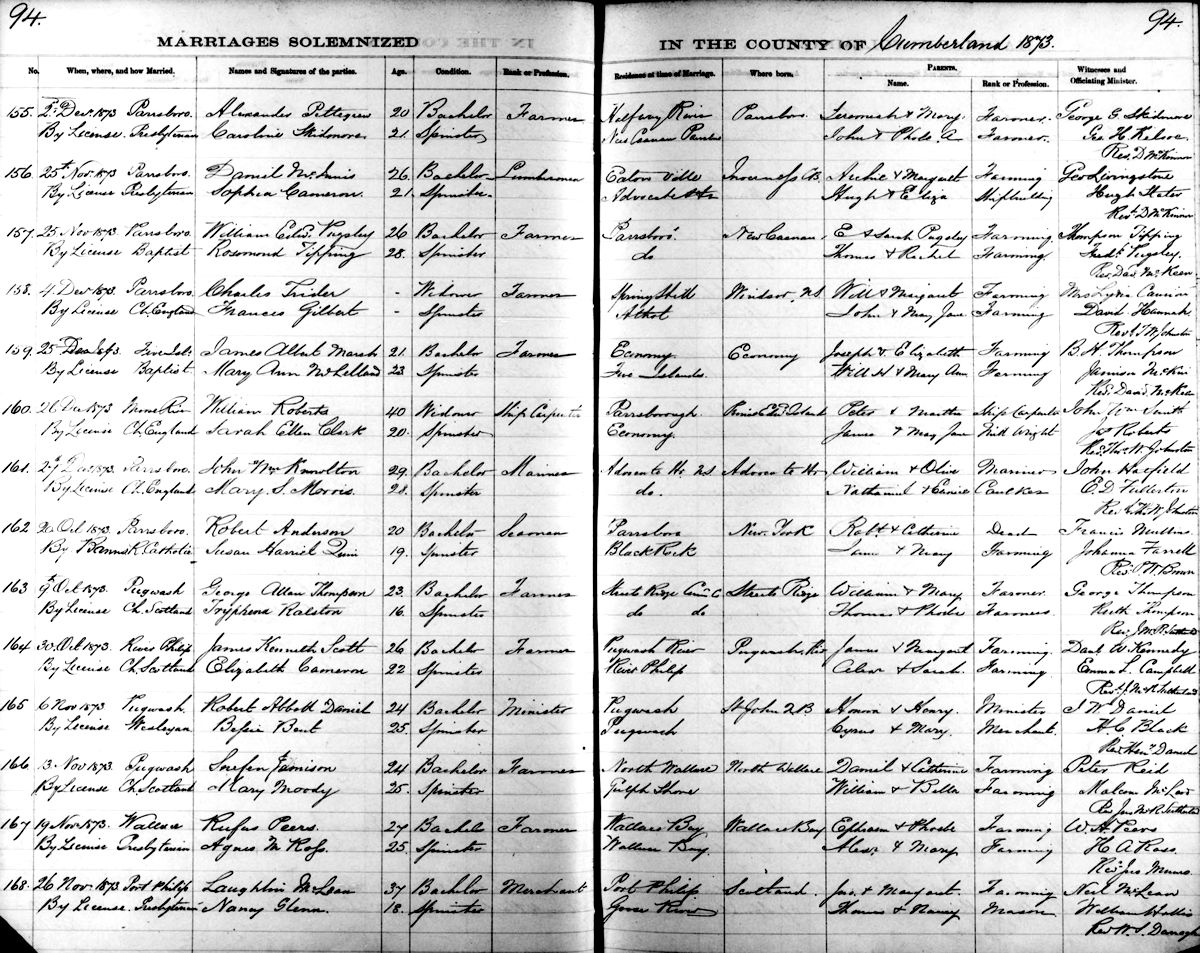 94. 94.
MARRIAGES SOLEMNIZED IN THE COUNTY OF Cumberland 1873.
No. When, where, and how Married. Names and Signatures of the parties. Age. Condition. Rank or Profession. Residence at time of Marriage. Where born. PARENTS. Name. Rank or Profession. Witnesses and Officiating Minister.
155. 2d Decr. 1873 Parrsboro. Alexander Pettegrew 20 Bachelor Farmer Halfway River Parrsboro. Jeremiah & Mary. Farmer. George G. Skidmore
By License Presbyterian Caroline Skidmore 21. Spinster John & Farmer. Geo H. Kelsoe
Rev. D. McKinnon
156. 25th Nov. 1873 Parrsboro. Daniel McInnis 26. Bachelor Lumberman Eaton Ville Inverness CB. Archie & Margaret Farming Geo Livingstone
By License Presbyterian Sophia Cameron. 21. Spinster. Advocate Hugh & Eliza Shipbuilding Hugh
Revd. D. McKinnon
157. 25 Nov 1873 Parrsboro. William Edwd. Pugsley 26 Bachelor Farmer Parrsboro'. New Canaan E & Sarah Pugsley Farming Thompson Tipping
By License Baptist Rosomond Tipping 28. Spinster do Thomas & Rachel Farming Fredk. Pugsley.
Rev. Davd. McKeen
158. 4 Decr 1873. Parrsboro. Charles Trider - Widower Farmer Spring Hill Windsor, NS. Will & Margaret Farming Mrs Lydia
By License Ch. England Frances Gilbert - Spinster Athol John & Mary Jane Farming David Hannah
Revd. T W Johnston
159. 25 Dec 1873. Five Isls. James Albert Marsh 21. Bachelor Farmer Economy. Economy Joseph & Elizabeth Farming B. H. Thompson
By License Baptist Mary Ann McLelland 23 Spinster Five Islands. Will H & Mary Ann Farming Jamison
Rev. David McKeen
160. 26 Dec 1873 William Roberts 40 Widower Ship Carpenter Parrsborough. Prince Edwd Island Peter & Martha Ship Carpenter John Wm Smith
By License Ch. England Sarah Ellen Clark 20. Spinster Economy. James & Mary Jane Mill Wright Roberts
Rev. Thos. W. Johnston
161. 27 Dec 1873. Parrsboro. John Wm Knowlton 29. Bachelor Mariner Advocate Ho. NS. Advocate Hr. William & Olive Mariner John Hatfield
By License Ch. England Mary S. Morris. 28. Spinster do. Nathaniel & Eunice Caulker E. D. Fullerton
Rev. W. Johnston
162. 20 Oct 1873. Parrsboro. Robert Anderson 20 Bachelor Seaman Parrsboro New York Robt. & Catherine Dead Francis Mullins
By Banns R. Catholic Susan Harriet Quin 19. Spinster Black Rock & Mary Farming Johanna Farrell
Revd. W. Brown
163 9 Oct 1873. Pugwash George Allan Thompson 23. Bachelor Farmer Streets Ridge Streets Ridge William & Mary Farmer George Thompson
By License Ch. Scotland Tryphena Ralston 16. Spinster do do Thomas & Phoebe Farmer. Keith Thompson
Rev. J. McR. Sutherland
164 30. Oct 1873. River Philip James Kenneth Scott 26 Bachelor Farmer Pugwash River Pugwash Riv. James & Margaret Farming. Danl. W Kennedy
By License Ch. Scotland Elizabeth Cameron 22 Spinster River Philip & Sarah. Farming. Emma L. Campbell
Rev. J. McR. Sutherland
165 6 Nov 1873 Pugwash. Robert Abbott Daniel 24 Bachelor Minister Pugwash St John NB. & Henry. Minister J W Daniel
By License Wesleyan Bessie Bent 25. Spinster Pugwash Cyrus & Mary. Merchant. H. C. Black
Rev. Heny. Daniel
166 13. Nov 1873. Pugwash Jamison 24 Bachelor Farmer North Wallace North Wallace Daniel & Catherine Farming Peter Reid
By License Ch. Scotland Mary Moody 25. Spinster Gulph Shore William & Bella Farming Malcom McLeod
Rev. Jno McR. Sutherland
167 19 Nov 1873. Wallace Rufus Peers. 27 Bachelor Farmer Wallace Bay. Wallace Bay Ephraim & Phoebe Farming W. A. Peers
By License Presbyterian Agnes M Ross. 25 Spinster Wallace Bay. Alexr. & Mary Farming H. A. Ross.
Rev. Jas Munro.
168. 26 Nov. 1873 Port Philip Laughlin McLean 37 Bachelor Merchant Port Philip Scotland. Jno. & Margaret. Farming Neil McLean
By License. Presbyterian Nancy Glenn. 18. Spinster Goose River Thomas & Nancy Mason William Hollis
Rev W. S. Darragh